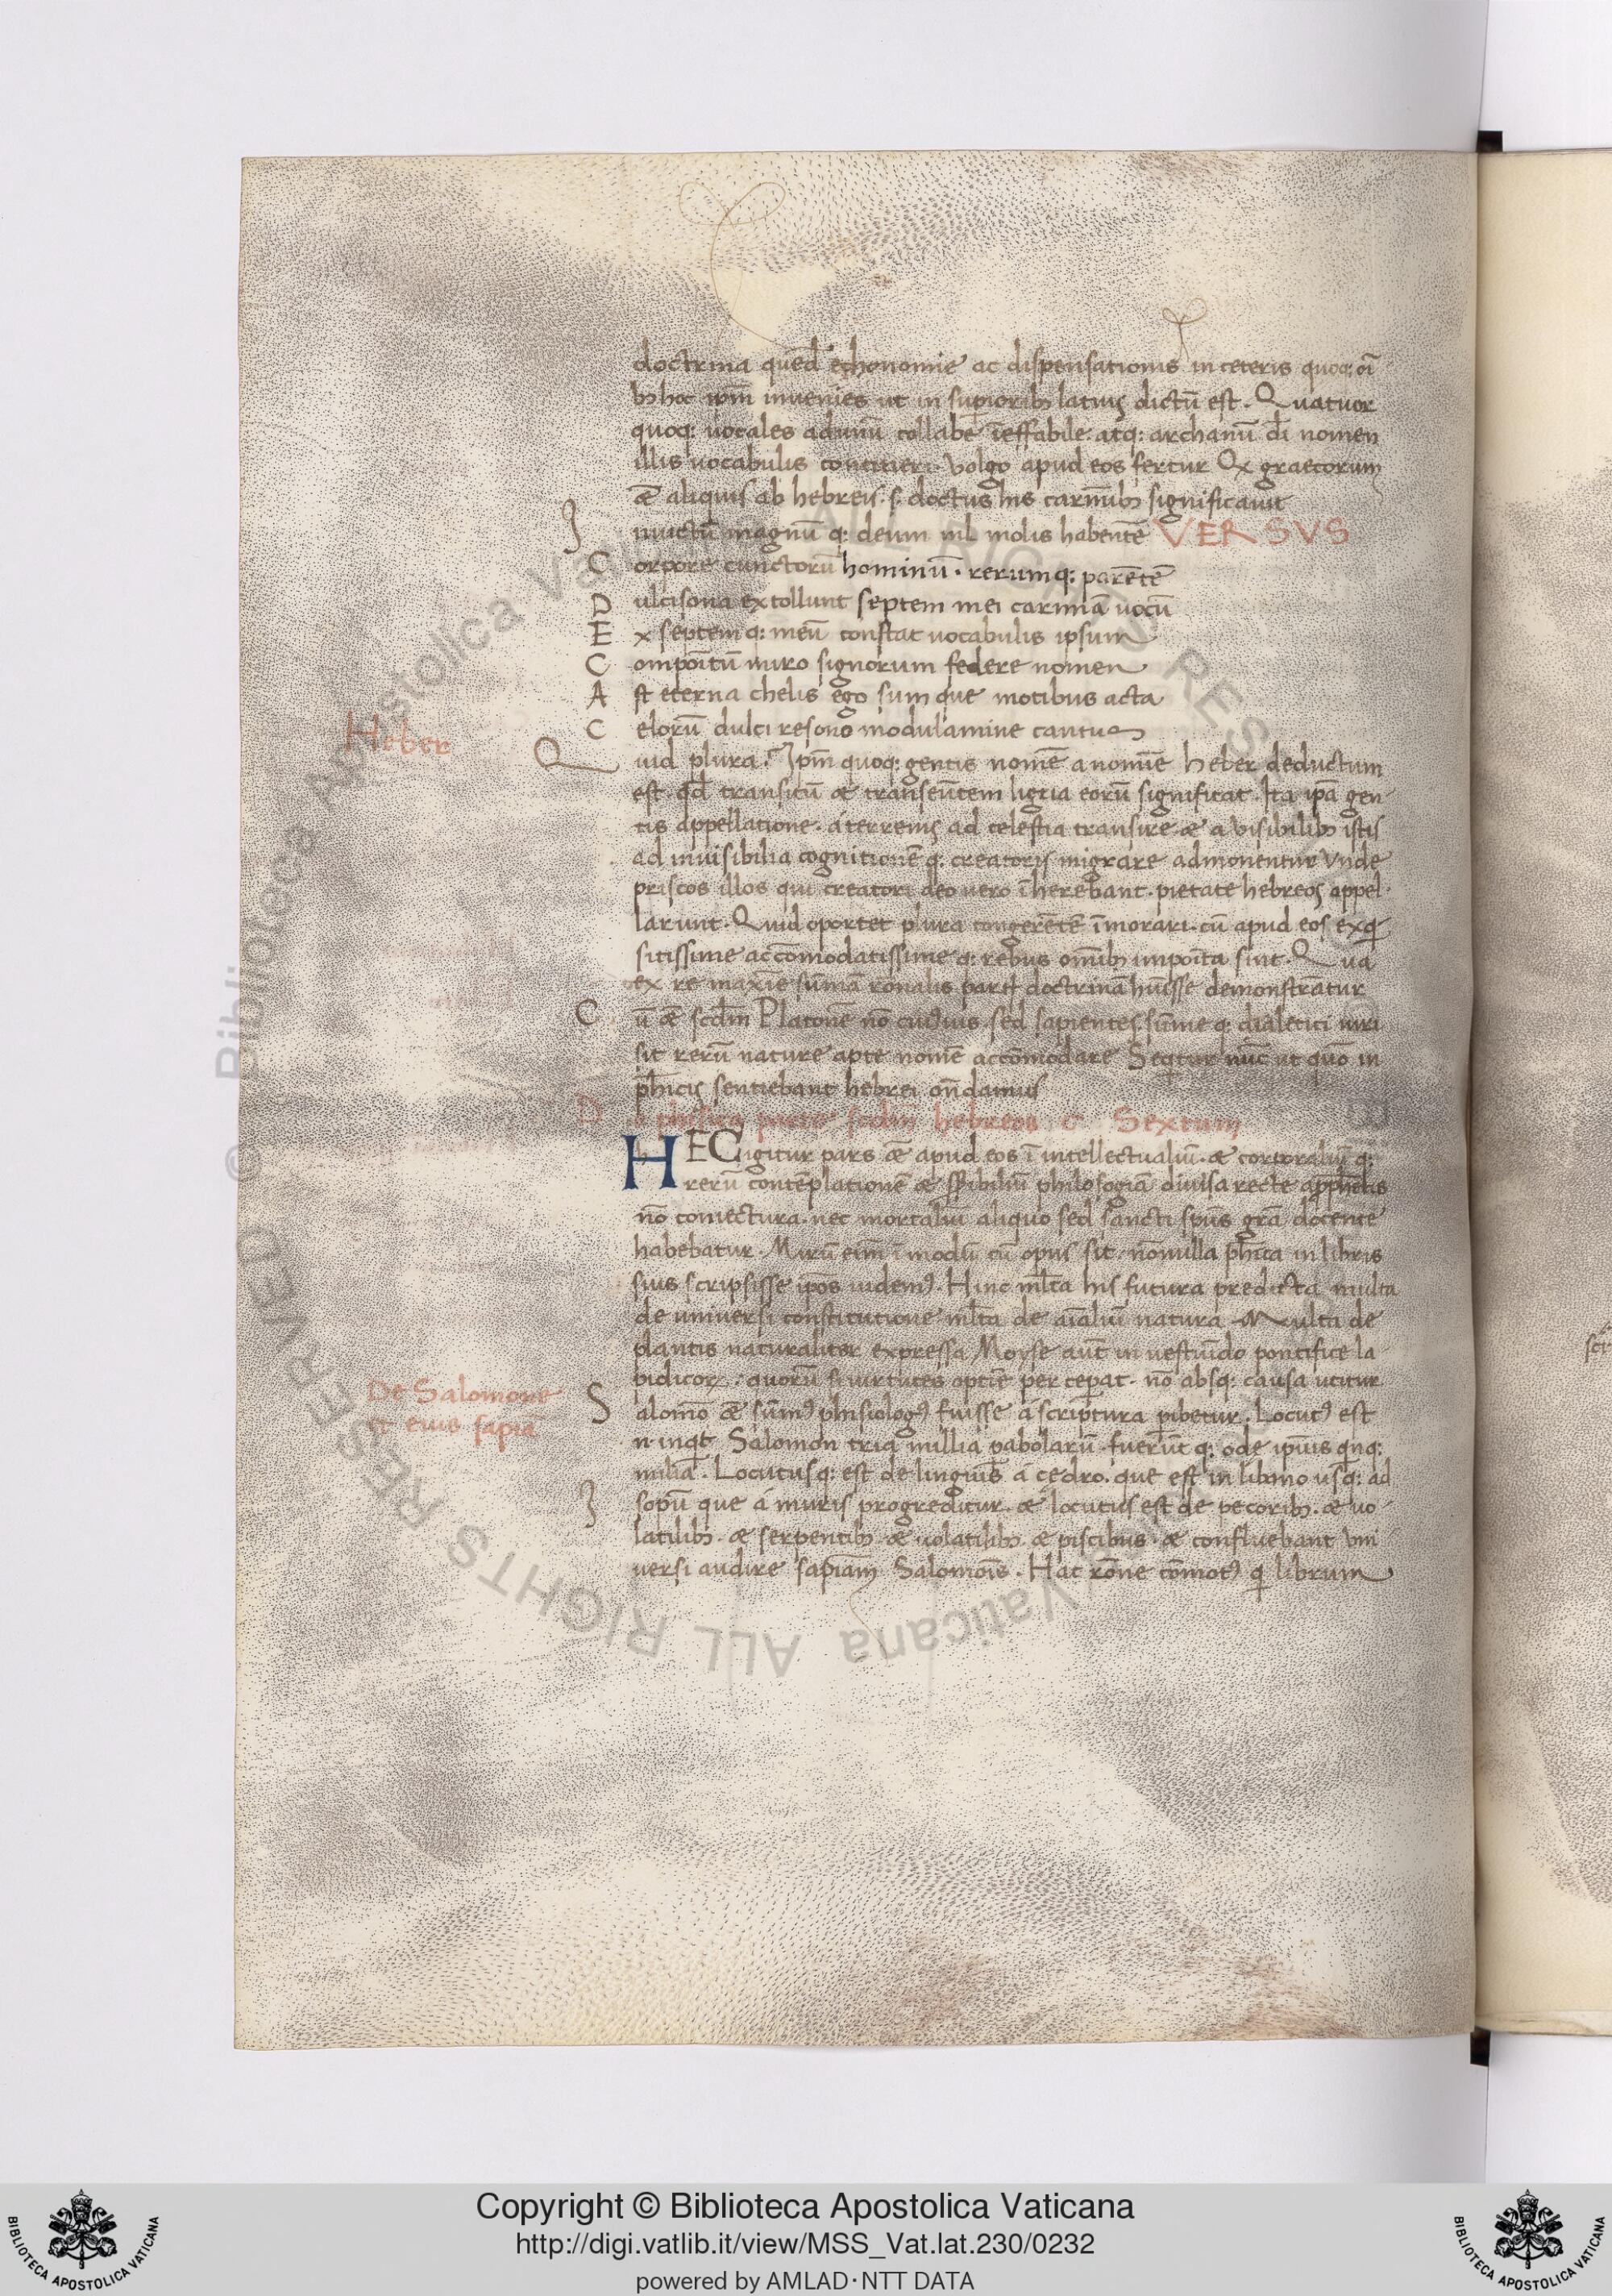 doctrina quēd echonomie ac dispensationis in ceteris quoq: oī
bȝ hoc ipm̄ invenies ut in superioribȝ latius dictū est. Quatuor
quoq: vocales adunū collabē īeffabile. atq: archanū dī nomen
illis vocabulis contineri. Volgo apud eos fertur Ex graecorum
æ aliquis ab hebreis. s. doctus his carmībȝ significavit
Invictū magnū q: deum nil molis habentē VERSVS
Corpore cunctorū hominū. rerumq: parētē
Dulcisona extollunt septem mei carminā vocū
Ex septem q: meū constat vocabulis ipsum
Compoītū miro signorum federe nomen
Ast eterna chelis ego sum que motibus acta
Celorū dulci resono modulamine cantum
Heber
Quid plura? Ipm̄ quoq: gentis nomē a nomīe heber deductum
est. qd̄ transitū æ transeūtem ligua eorū significat. Ita ipā gen-
tis appellatione. a terrenis ad celestia transire. æ a visibilibȝ istis
ad invisibilia cognitionē q: creatoris migrare admonentur Vnde
priscos illos qui creatori deo vero īherebant. pietate hebreos appel-
larunt. Quid oportet plura congerētē īmorari. cū apud eos exqi
sitissime accōmodatissime q: rebus omībȝ impoīta sint. Qua
ex re maxīe sūmā ronalis doctrinā huīsse demonstratur
Cū æ scdm̄ Platonē nō cuiusvis sed sapientes sūme q: dialetici viri
sit rerū nature apte nomē accōmodare Seqtur nūc ut quō in
phīcis sentiebant hebrei oñdamus
De phisica parte scdm̄ hebreos c Sextum
HEC igitur pars æ apud eos ī intellectualiū. æ corporaliū q:
rerū contēplationē æ philosogiā divisa recte a pphetis
nō coniectura. nec mortaliū aliquo sed sancti spūs grā docente
habebatur. Mirū eīm ī modū cū opus sit. nōnulla phīca in libris
suis scripsisse ipos videmus. Hinc mlta his futura predicta multa
de universi constitutione mlta de aīaliū natura Multa de
plantis naturaliter expressa Moyse aūt in vestiūdo pontifice la
bidicor. quorū si virtutes optīe perceperat. nō absq: causa utitur
De Salomone
et eius sapiā
Salomō æ sūmus phisiologus fuisse a scriptura pibetur. Locutus est
n. inqt Salomon tria millia pabolarū. fuerūt q: ode ipīuis qnq:
milia. Locutusq: est de linguis a cedro. que est in libano usq: ad
Isopū que a muris progreditur. æ locutus est de pecoribȝ. æ vo-
latilibȝ. æ serpentibȝ. æ volatilibȝ. æ piscibus. æ confluebant vni
versi audire sapiam̄ Salomoīs. Hac rōne cōmotus qi librum
Copyright © Biblioteca Apostolica Vaticana
http://digi.vatlib.it/view/MSS_Vat.lat.230/0232
powered by AMLAD·NTT DATA
BIBLIOTECA APOSTOLICA VATICANA
BIBLIOTECA APOSTOLICA VATICANA